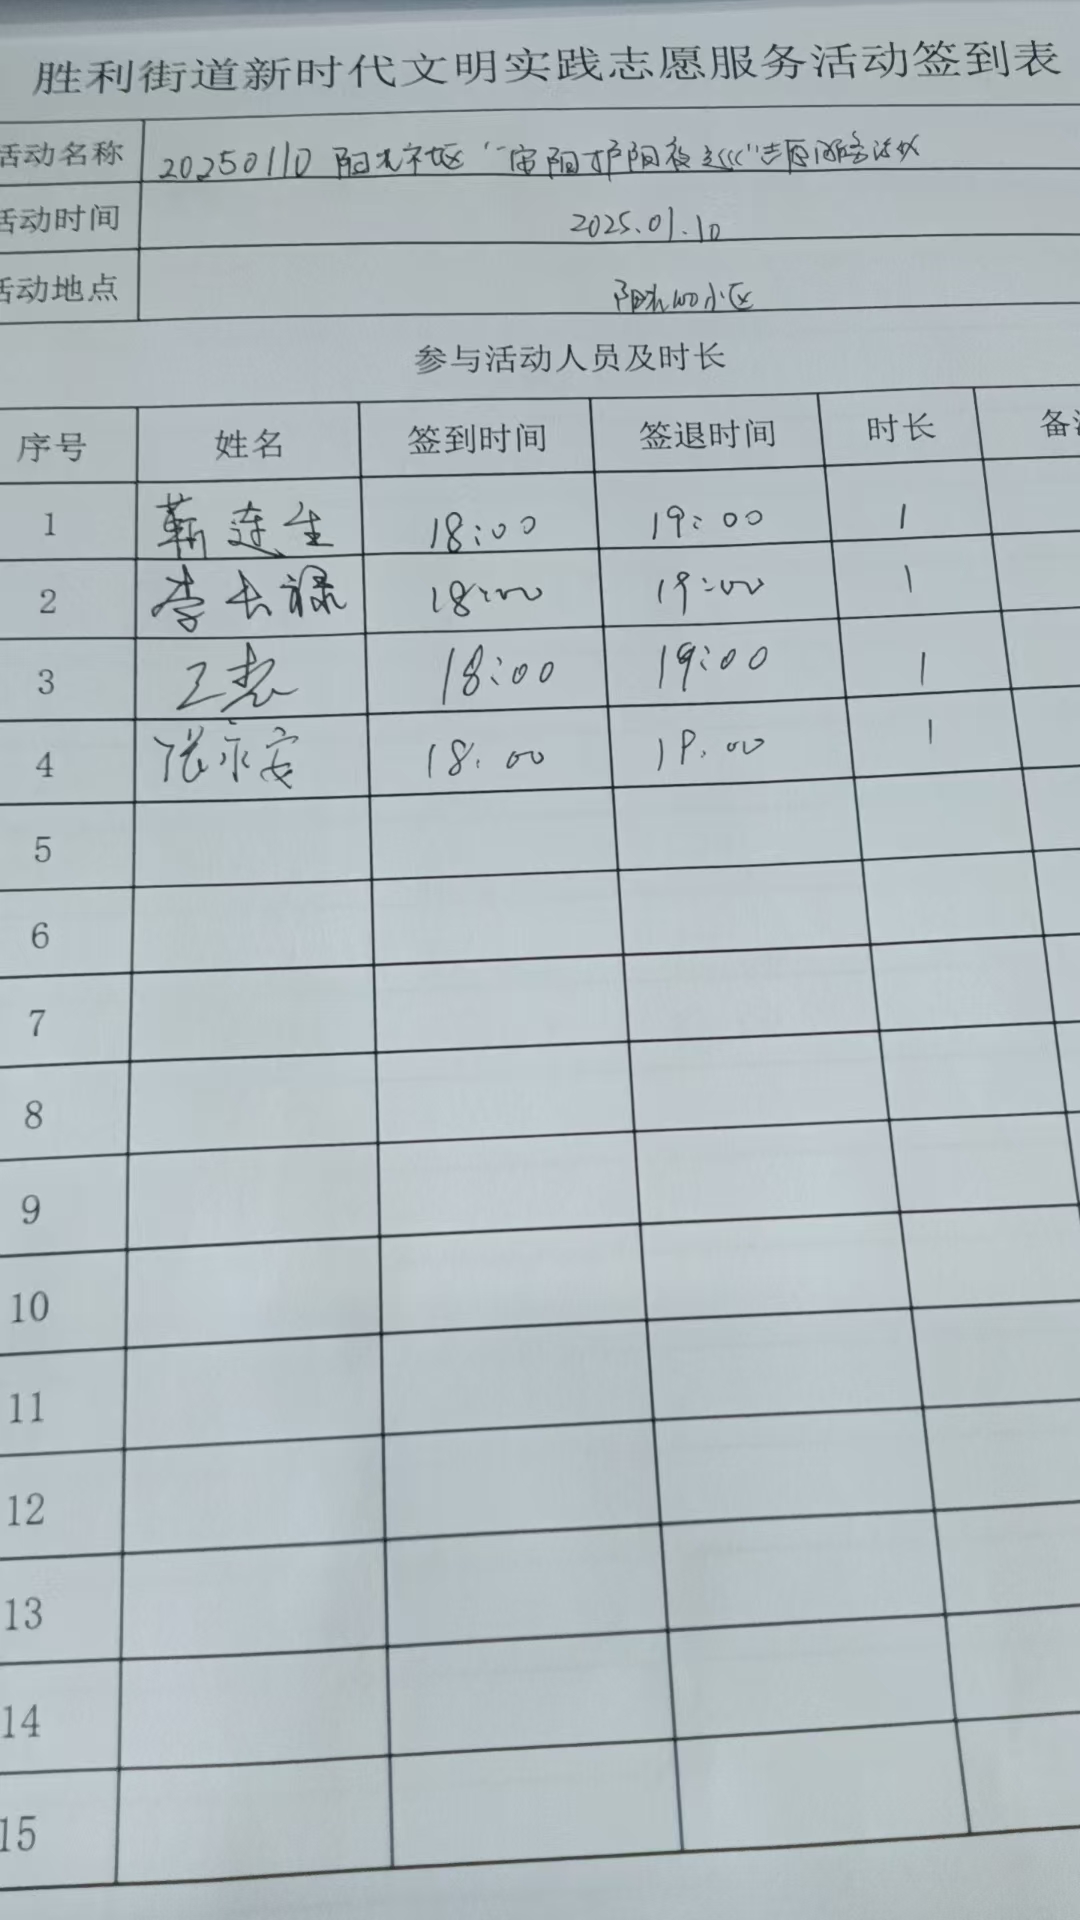 胜利街道新时代文明实践志愿服务活动签到表
活动名称 20250110 阳光社区“ 阳护阳夜巡”志愿服务活动
活动时间 2025.01.10
活动地点 阳光100小区
参与活动人员及时长
序号 姓名 签到时间 签退时间 时长 备注
1 靳连生 18:00 19:00 1
2 李长禄 18:00 19:00 1
3 王慧 18:00 19:00 1
4 张永安 18:00 19:00 1
5
6
7
8
9
10
11
12
13
14
15